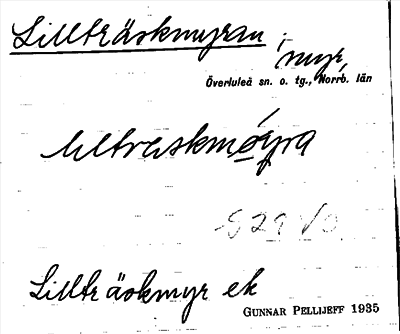 Lillträskmyran
myr,
Överluleå sn. o. tg., Norrb. län
S29 V0
Lillträskmyr ek
GUNNAR PELLIJEFF 1935